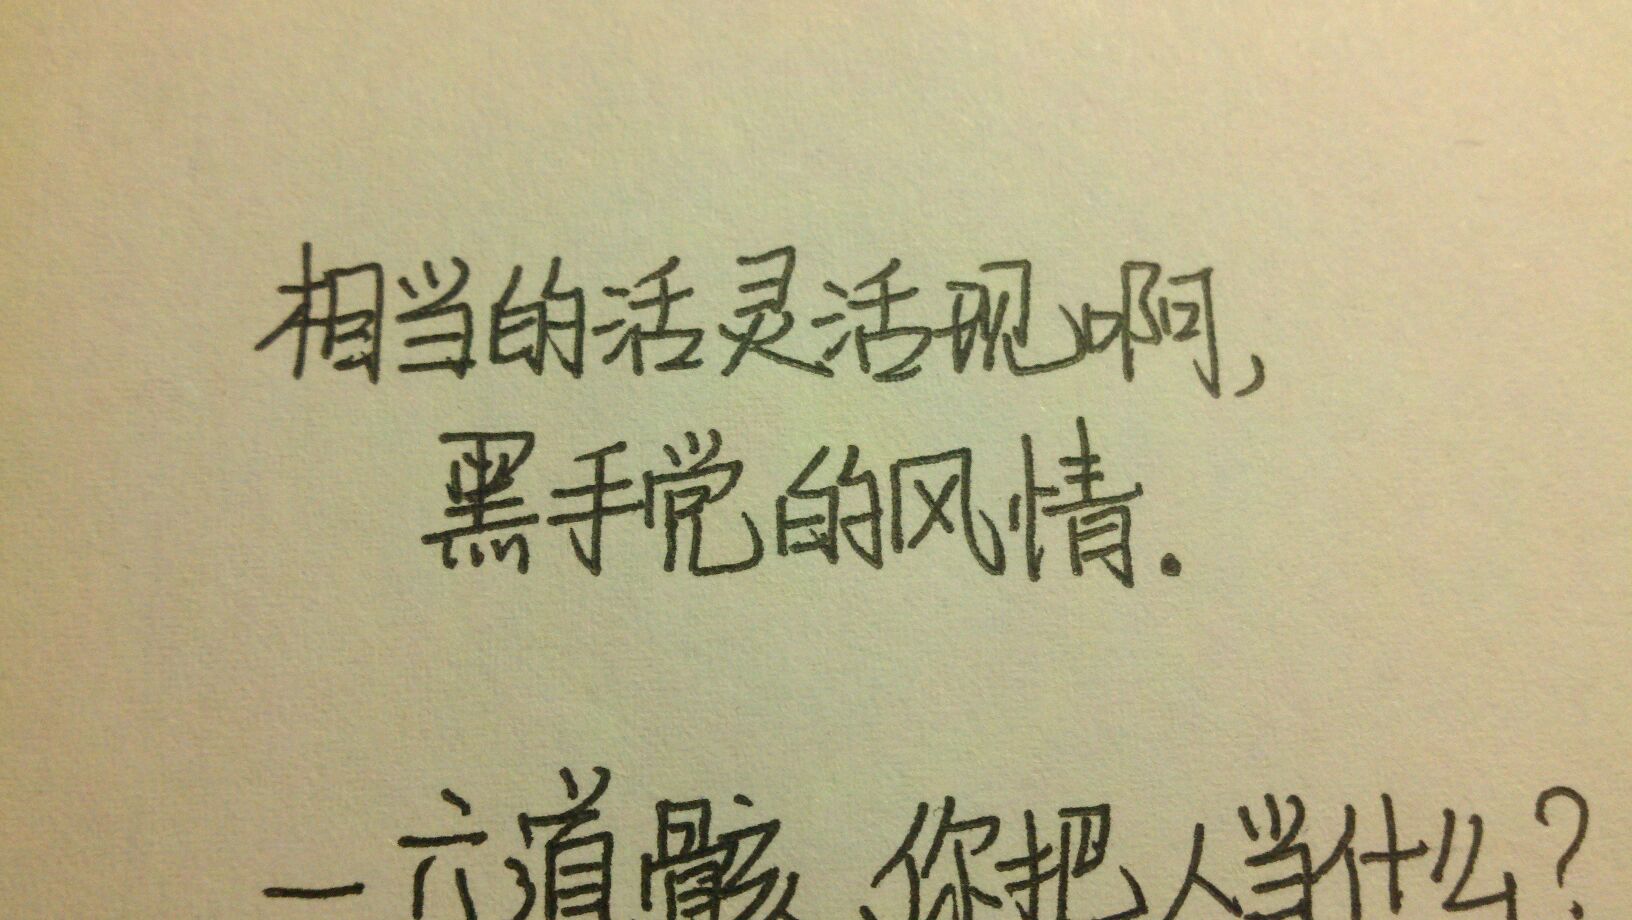 相当的活灵活现啊,
黑手党的风情.
一六道骸 你把人当什么?